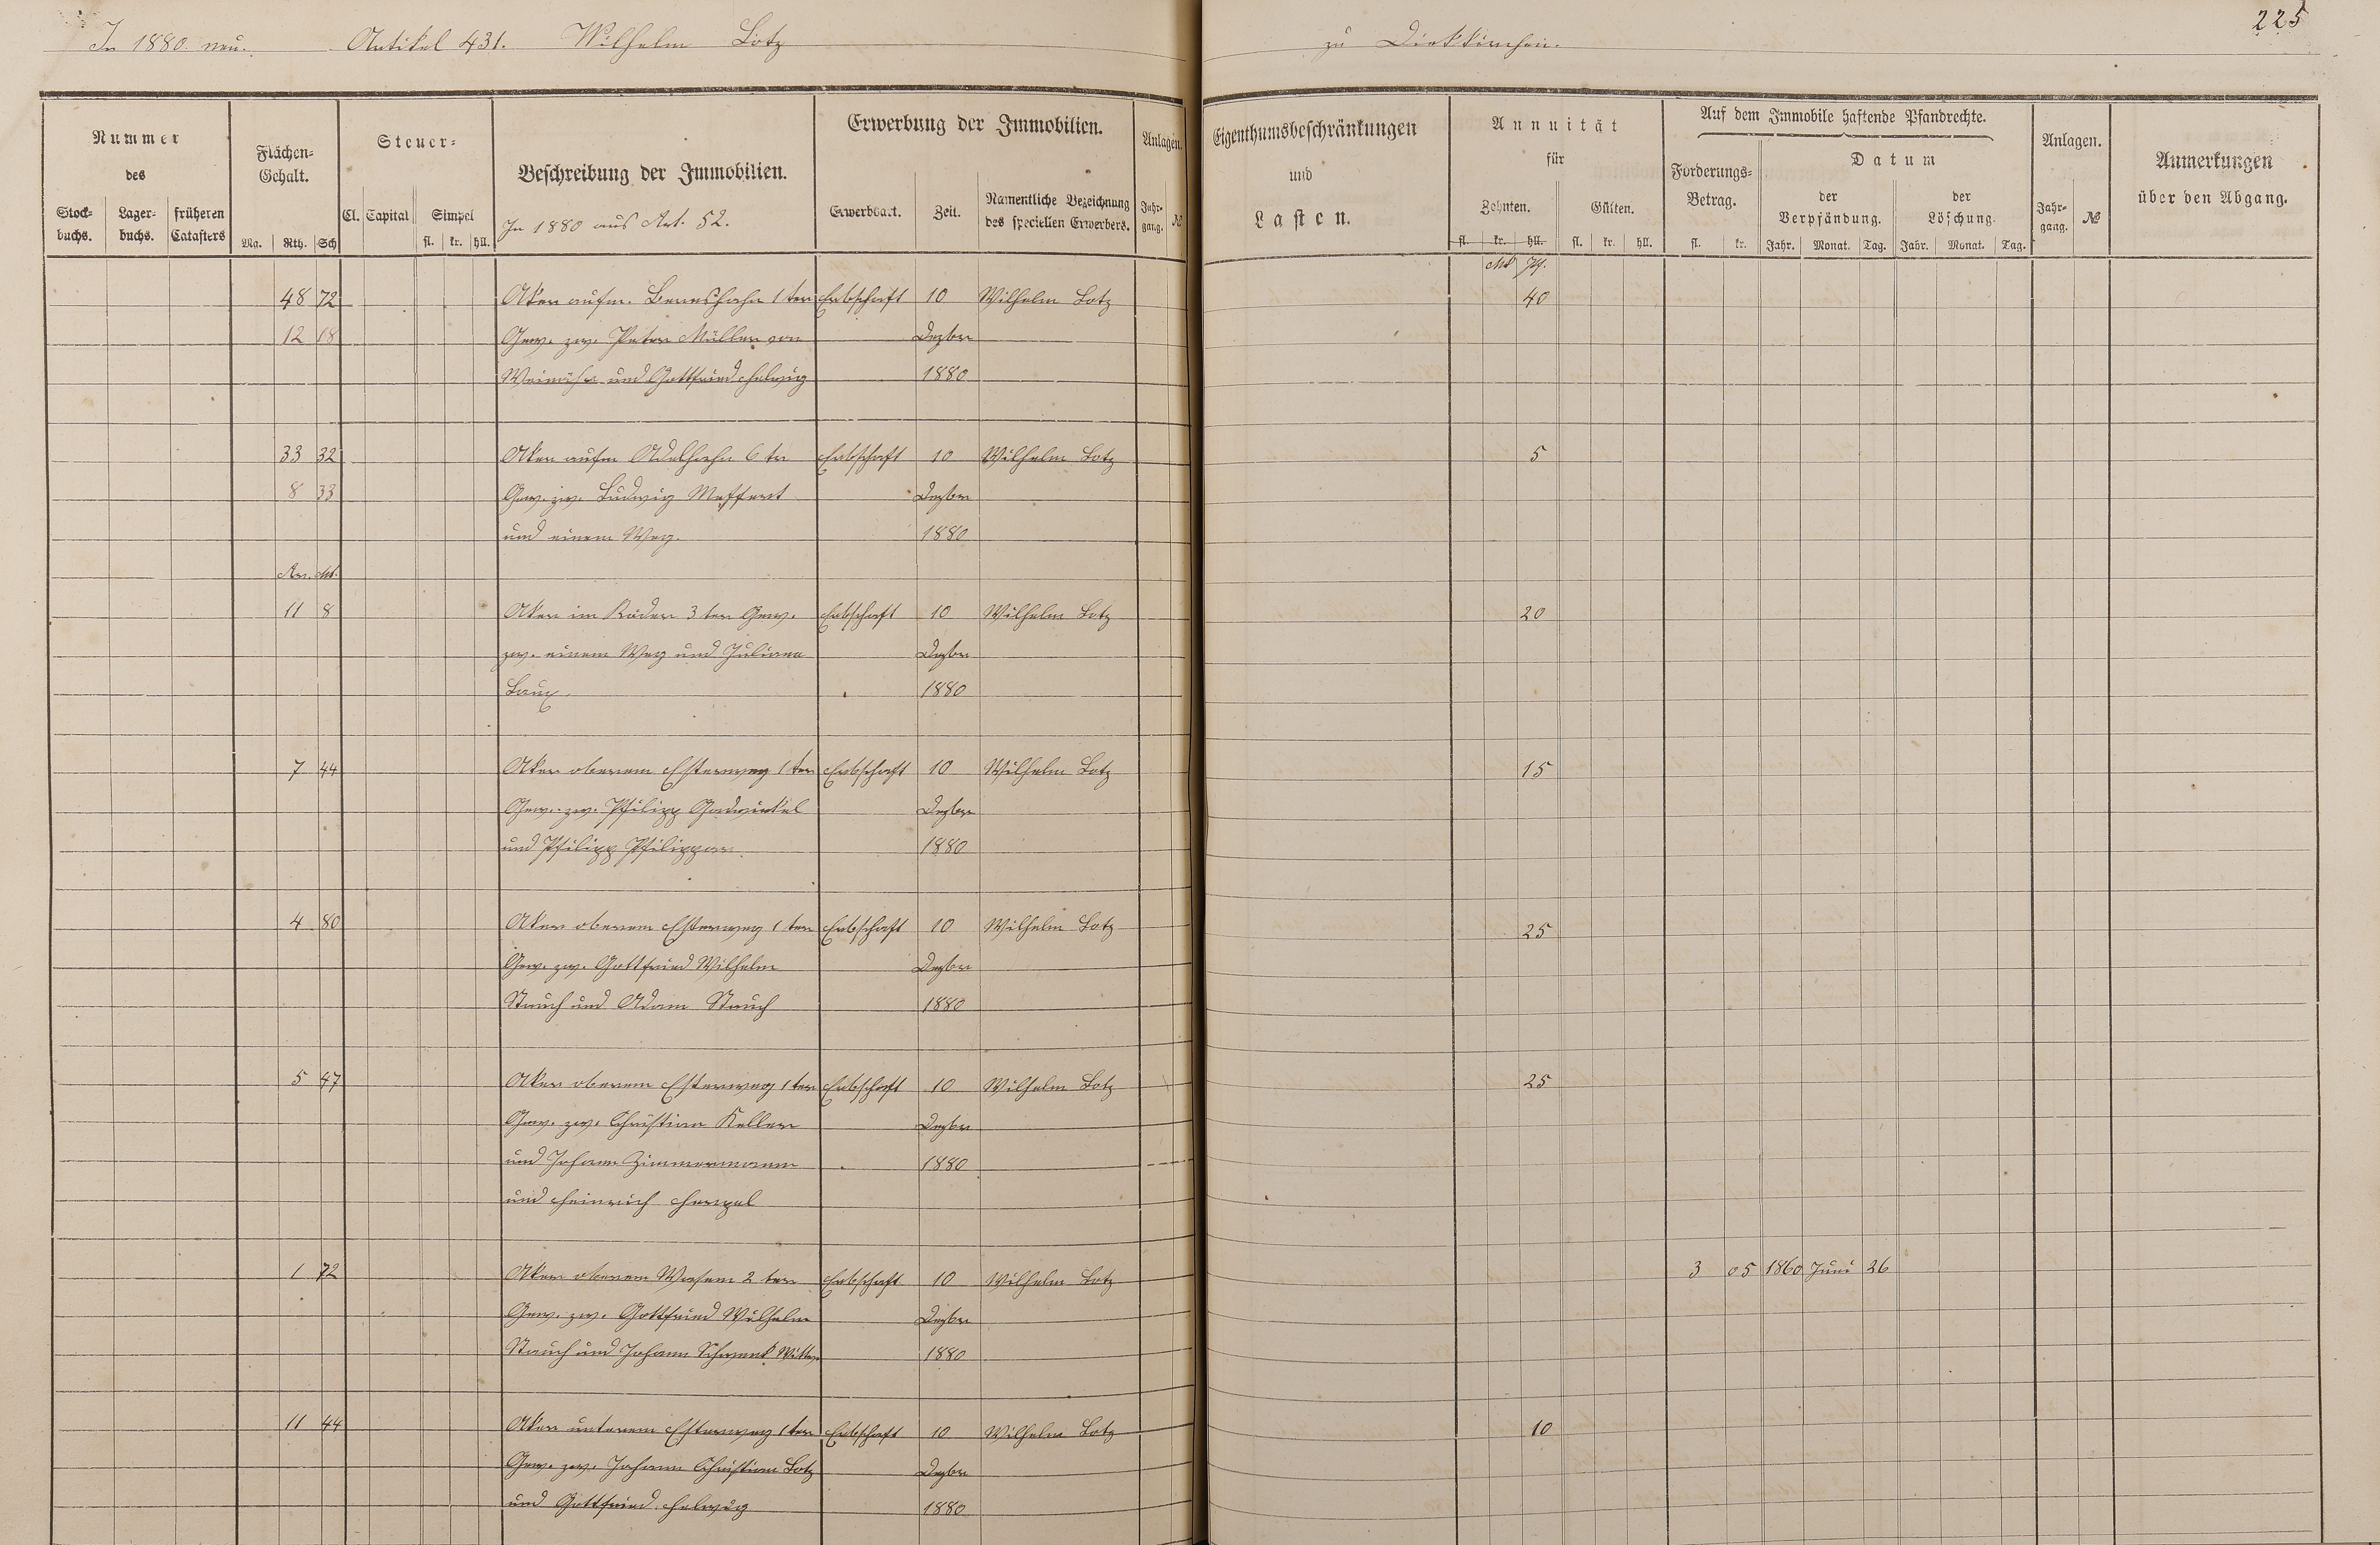 225
In 1880 neu. Artikel 431. Wilhelm Lotz zu Dietkirchen.
Nummer des
Stockbuchs. Lagerbuchs. früheren Catasters
Flächen-Gehalt.
Mg. Rth. Sch
Steuer-
Cl. Capital Simpel
fl. kr. hll.
Beschreibung der Immobilien.
In 1880 aus Art. 52.
Erwerbung der Immobilien.
Erwerbsart. Zeit. Namentliche Bezeichnung des speciellen Erwerbers.
Anlagen.
Jahrgang. №
Eigenthumsbeschränkungen und Lasten.
Annuität für
Zehnten. Gülten.
fl. kr. hll. fl. kr. hll.
Auf dem Immobile haftende Pfandrechte.
Forderungs-Betrag. Datum
der Verpfändung. der Löschung.
fl. kr. Jahr. Monat. Tag. Jahr. Monat. Tag.
Anlagen.
Jahrgang. №
Anmerkungen über den Abgang.
Mk Pf.
48 72 Aker aufm 1 ten Erbschaft 10 Wilhelm Lotz 40
12 18 Gew. zw. Peter Müller von Dezbr
und Gottfried Helwig 1880
33 32 Aker aufm 6 ten Erbschaft 10 Wilhelm Lotz 5
8 33 Gew. zw. Ludwig Meffert Dezbr
und einem Weg. 1880
Ar. Mt.
11 8 Aker im Röder 3 ten Gew. Erbschaft 10 Wilhelm Lotz 20
zw. einem Weg und Juliana Dezbr
Laux 1880
7 44 Aker oberem Esterweg 1 ten Erbschaft 10 Wilhelm Lotz 15
Gew. zw. Philipp Dezbr
und Philipp 1880
4 80 Aker oberem Esterweg 1 ten Erbschaft 10 Wilhelm Lotz 25
Gew. zw. Gottfried Wilhelm Dezbr
Stauch und Adam Stauch 1880
5 47 Aker oberem Esterweg 1 ten Erbschaft 10 Wilhelm Lotz 25
Gew. zw. Christian Keller Dezbr
und Johann Zimmermann 1880
und Heinrich
1 72 Aker oberem Wasem 2 ten Erbschaft 10 Wilhelm Lotz 3 05 1860 Juni 26
Gew. zw. Gottfried Wilhelm Dezbr
Stauch und Johann Schwenk Witter 1880
11 44 Aker unterem Esterweg 1 ten Erbschaft 10 Wilhelm Lotz 10
Gew. zw. Johann Christian Lotz Dezbr
und Gottfried Helwig 1880